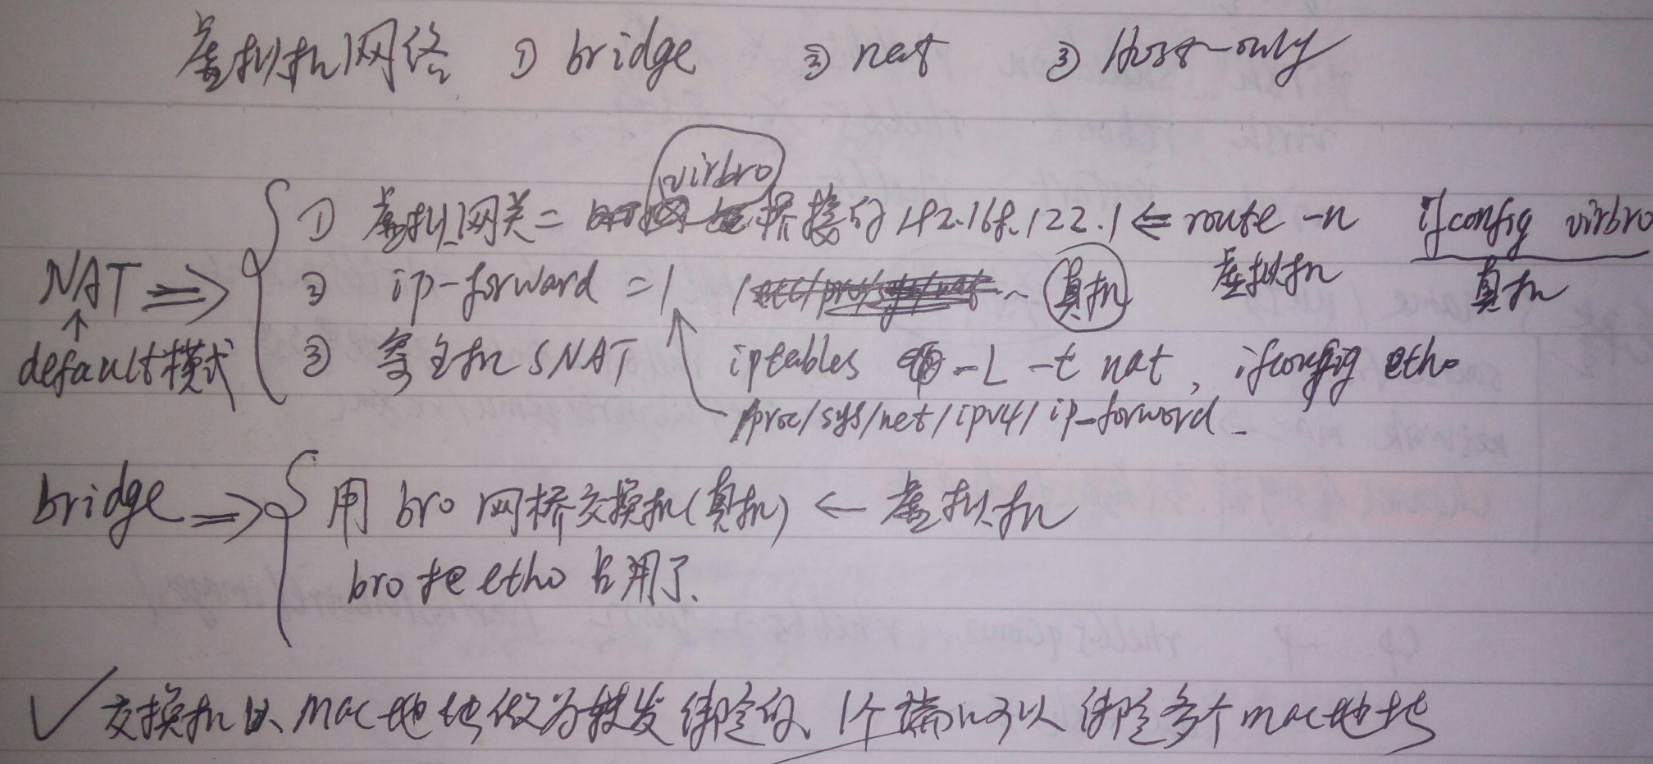 虚拟机网络 ① bridge ② nat ③ Host-only
virbr0
① 虚拟网关= 桥接的 192.168.122.1 ⇐ route -n ifconfig virbr0
NAT ⇒ ② ip-forward =1 ~ 真机 虚拟机 真机
default模式 ③ 宿主机SNAT iptables -L -t nat, ifconfig eth0
/proc/sys/net/ipv4/ip-forword
bridge ⇒ 用 br0 网桥交换机(真机) ← 虚拟机
br0 把 eth0 占用了.
✓ 交换机以 mac地址做为转发绑定的、1个端口可以绑定多个mac地址